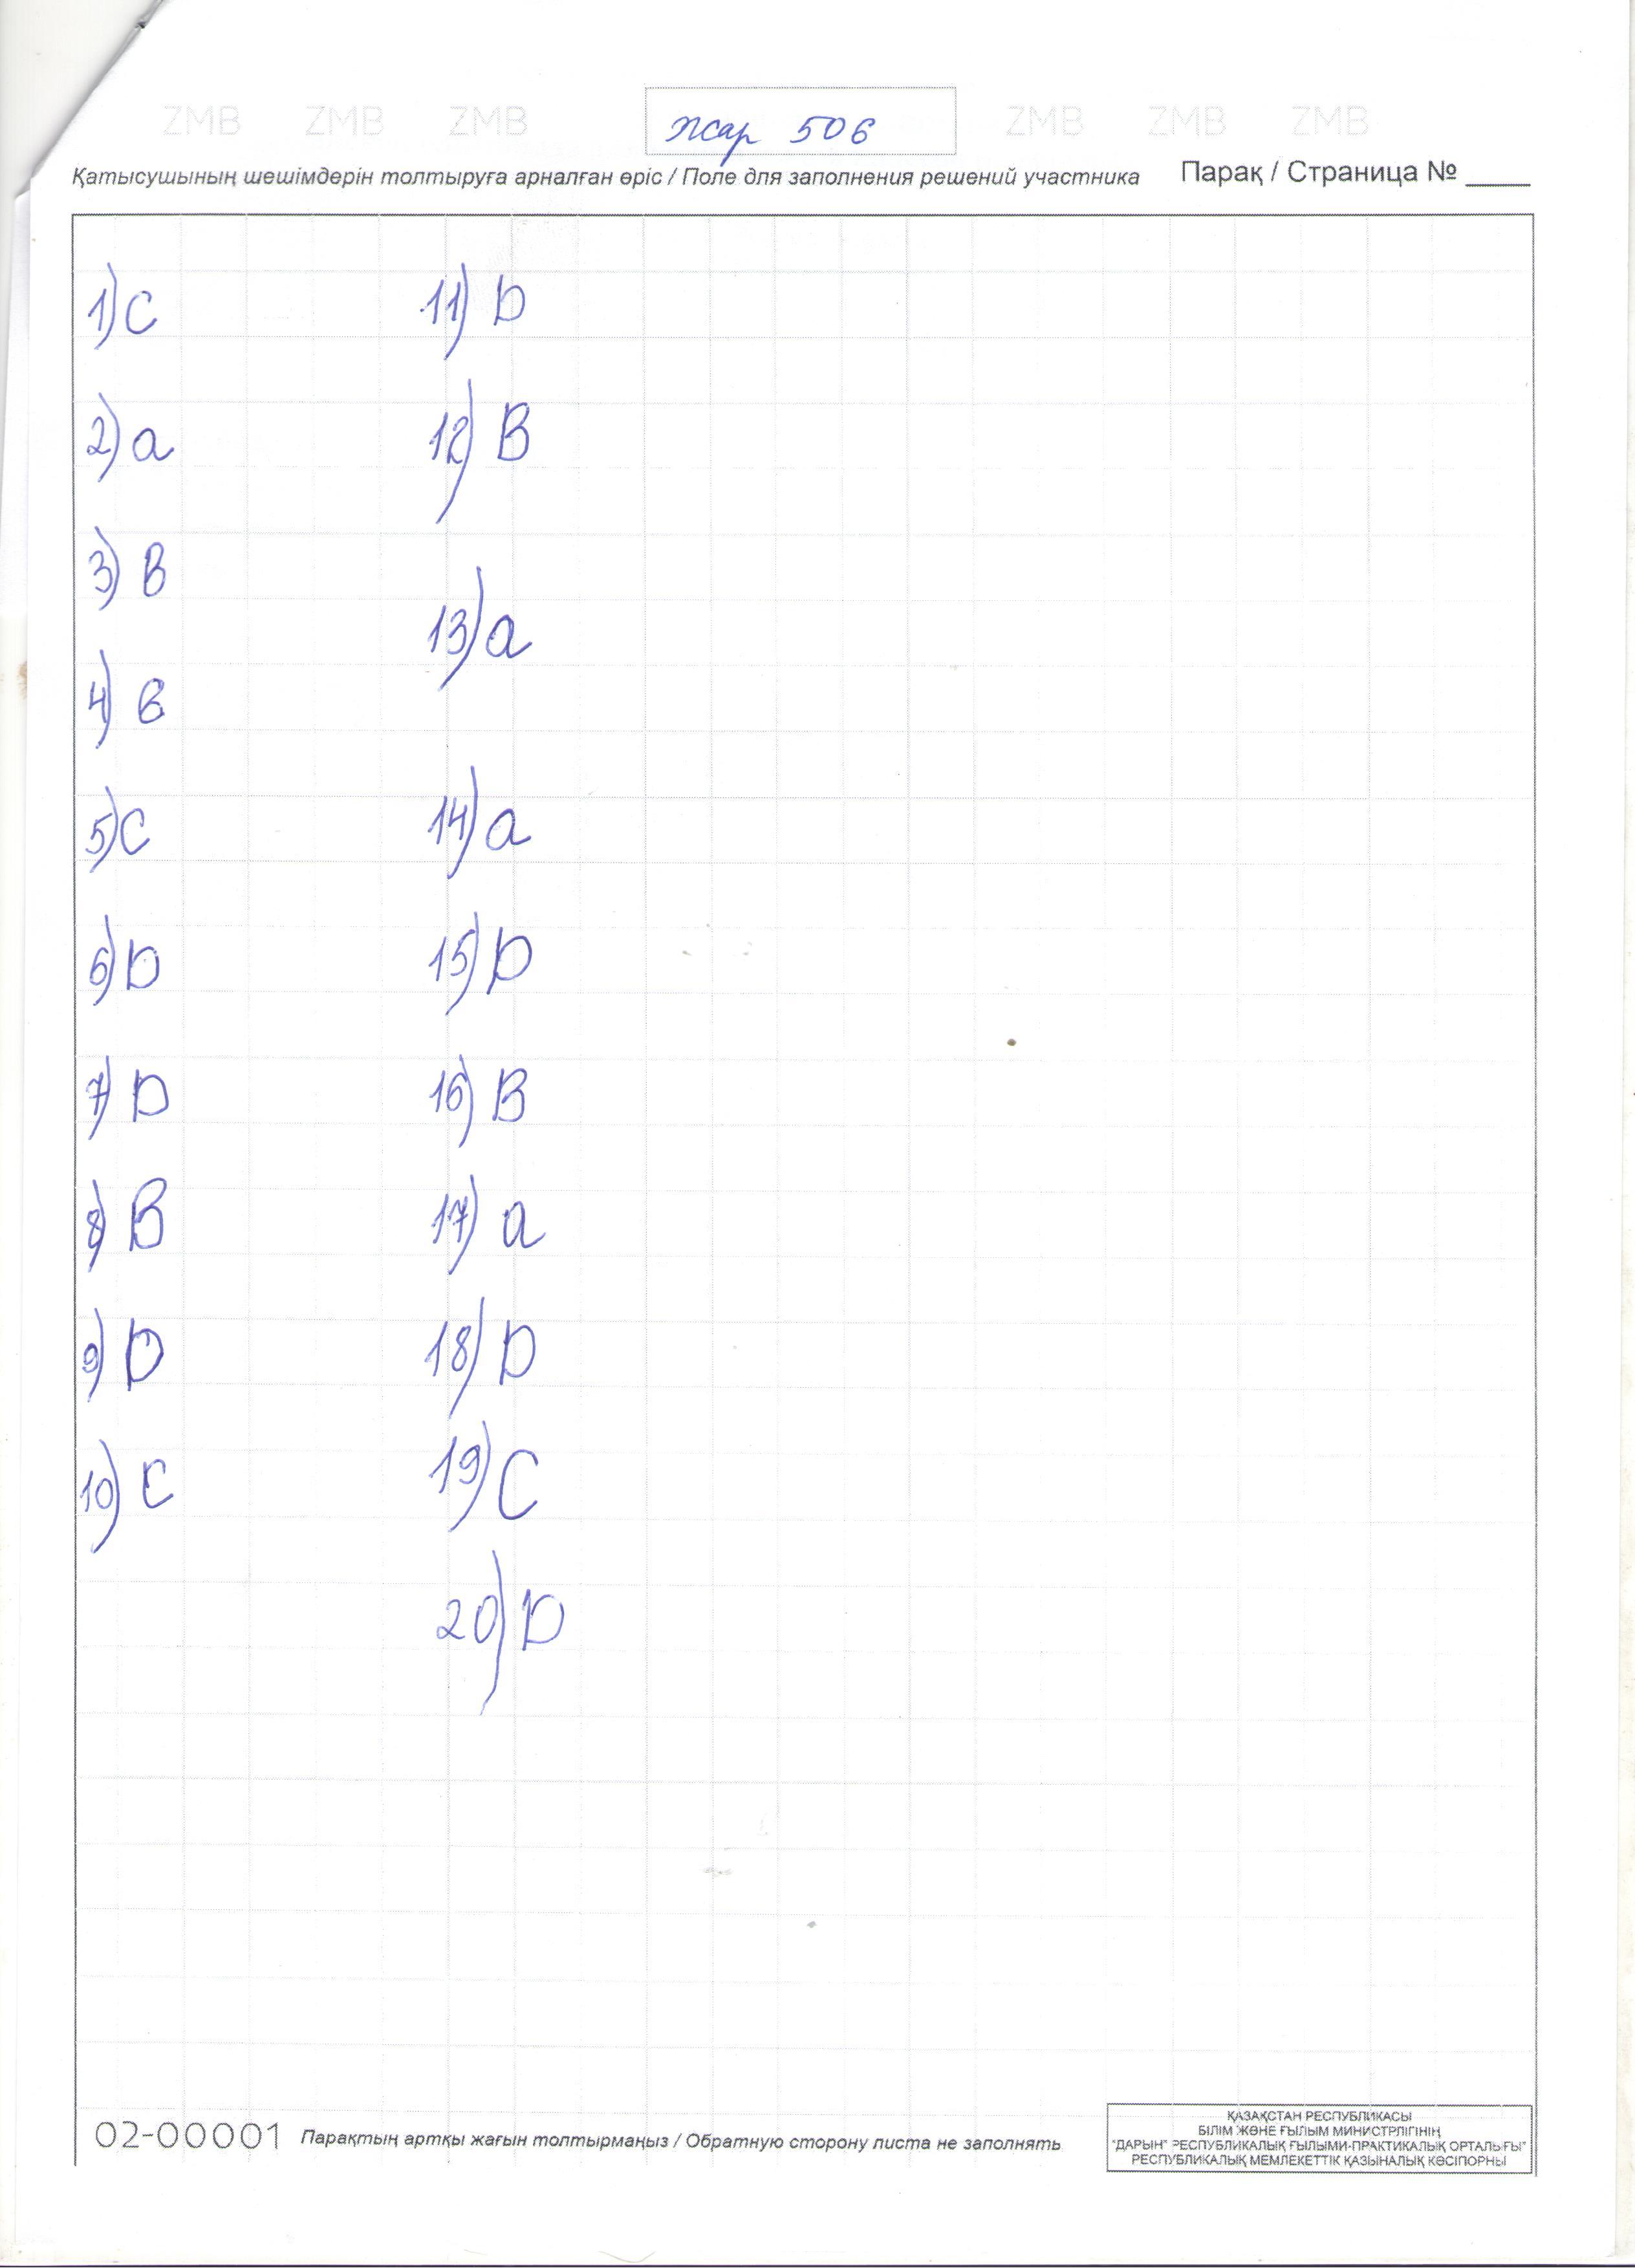 ZMB ZMB ZMB жар 506 ZMB ZMB ZMB
Қатысушының шешімдерін толтыруға арналған өріс / Поле для заполнения решений участника Парақ / Страница № ____
1) C
2) a
3) B
4) в
5) C
6) D
7) D
8) B
9) D
10) C
11) D
12) B
13) a
14) a
15) D
16) B
17) a
18) D
19) C
20) D
02-00001 Парақтың артқы жағын толтырмаңыз / Обратную сторону листа не заполнять
ҚАЗАҚСТАН РЕСПУБЛИКАСЫ
БІЛІМ ЖӘНЕ ҒЫЛЫМ МИНИСТРЛІГІНІҢ
"ДАРЫН" РЕСПУБЛИКАЛЫҚ ҒЫЛЫМИ-ПРАКТИКАЛЫҚ ОРТАЛЫҒЫ"
РЕСПУБЛИКАЛЫҚ МЕМЛЕКЕТТІК ҚАЗЫНАЛЫҚ КӘСІПОРНЫ